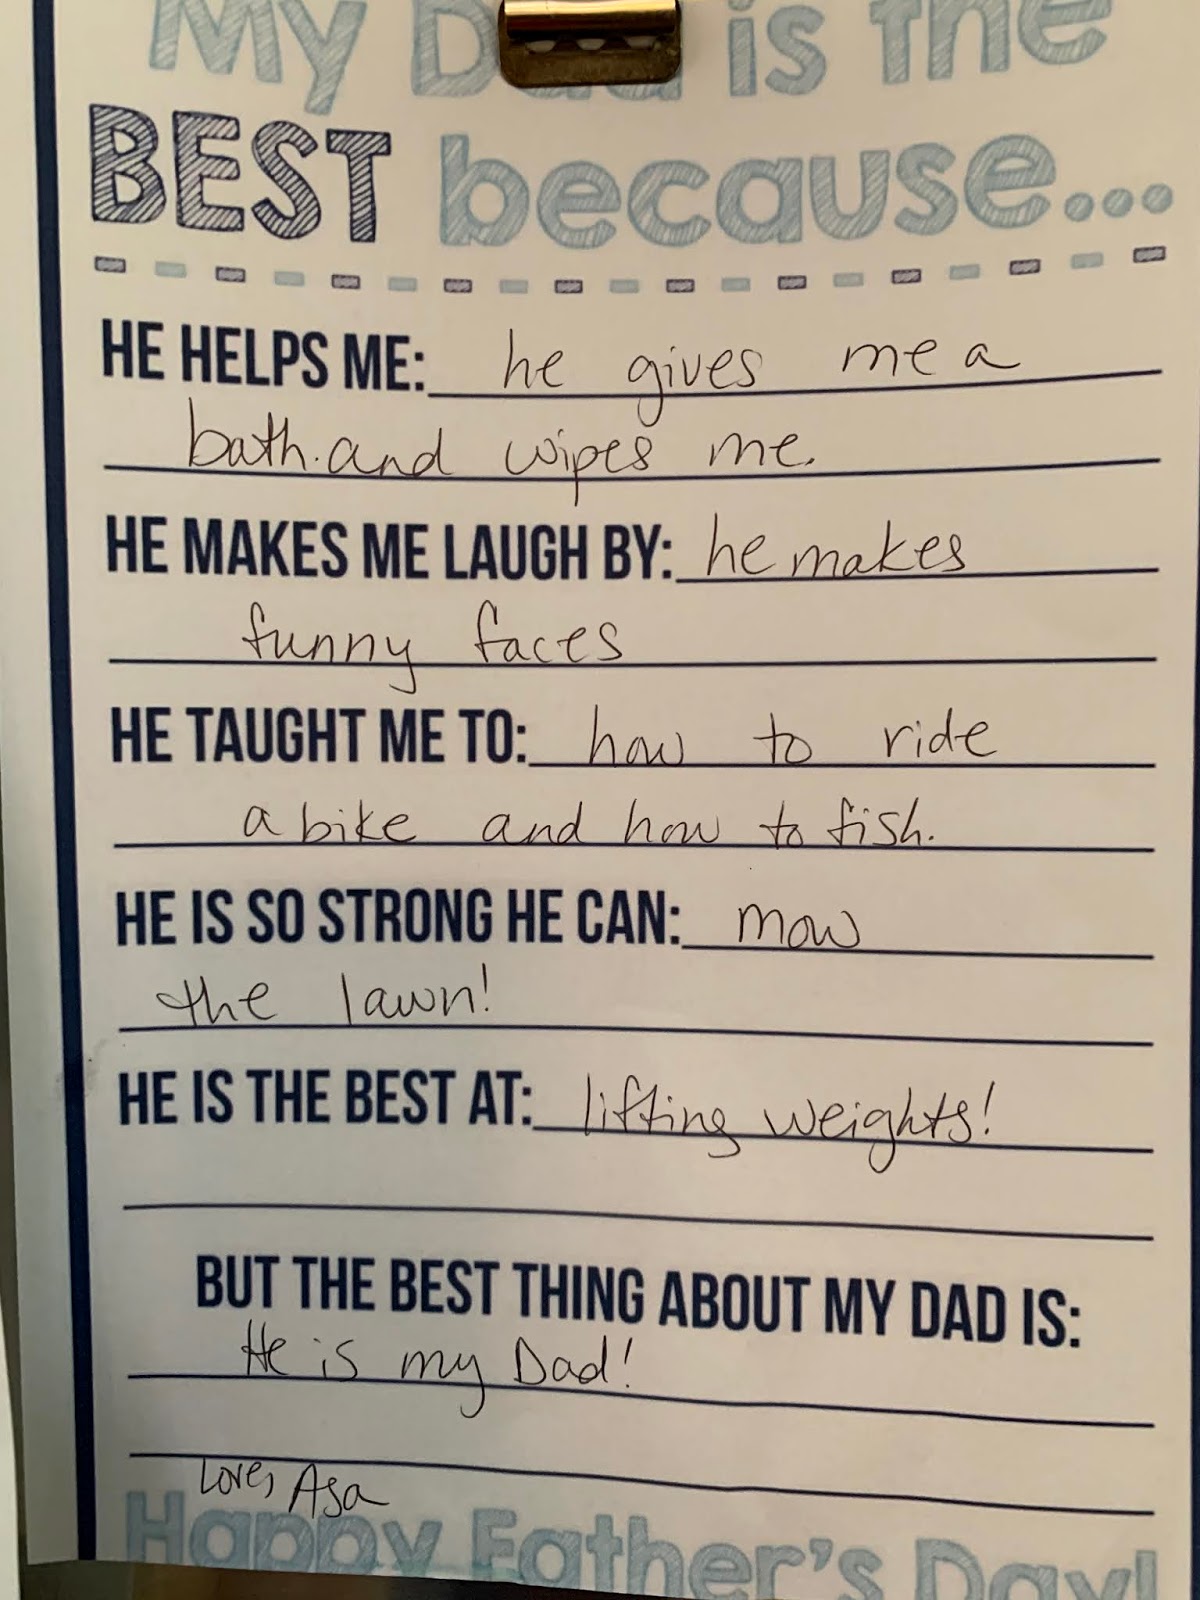 My Dad is the
BEST because...
HE HELPS ME: he gives me a
bath. and wipes me.
HE MAKES ME LAUGH BY: he makes
funny faces
HE TAUGHT ME TO: how to ride
a bike and how to fish.
HE IS SO STRONG HE CAN: mow
the lawn!
HE IS THE BEST AT: lifting weights!
BUT THE BEST THING ABOUT MY DAD IS:
He is my Dad!
Love, Asa
Happy Father's Day!